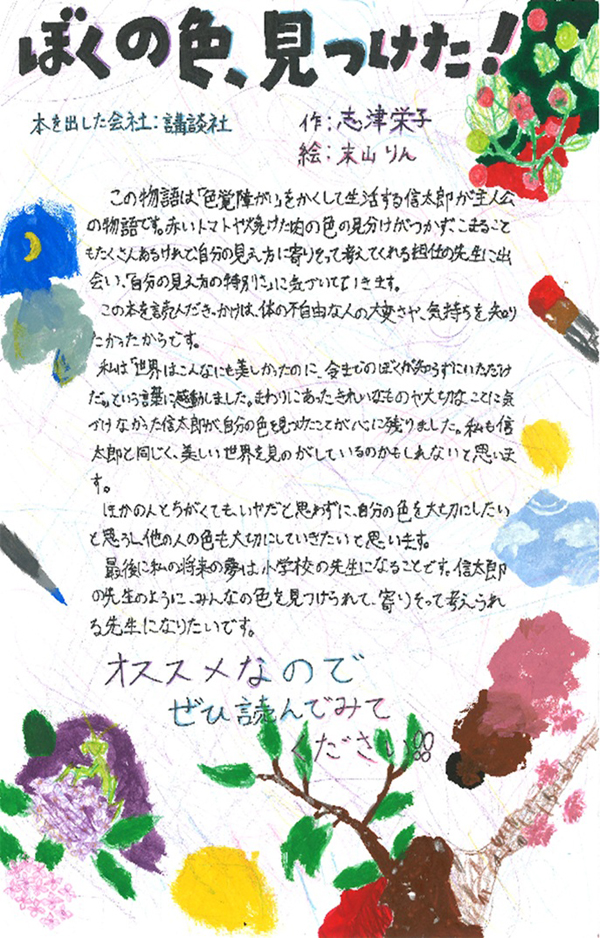 ぼくの色、見つけた!
本を出した会社:講談社
作:志津栄子
絵:末山りん
この物語は「色覚障がい」をかくして生活する信太郎が主人公
の物語です。赤いトマトや焼けた肉の色の見分けがつかずこまること
もたくさんあるけれど自分の見え方に寄りそって考えてくれる担任の先生に出
会い、「自分の見え方の特別さ」に気づいていきます。
この本を読んだきっかけは、体の不自由な人の大変さや、気持ちを知り
たかったからです。
私は「世界はこんなにも美しかったのに、今までのぼくが知らずにいただけ
だ。」という言葉に感動しました。まわりにあったきれいなものや大切なことに気
づけなかった信太郎が、自分の色を見つけたことが心に残りました。私も信
太郎と同じく、美しい世界を見のがしているのかもしれないと思いま
す。
ほかの人とちがくても、いやだと思わずに、自分の色を大切にしたい
と思うし、他の人の色も大切にしていきたいと思います。
最後に私の将来の夢は、小学校の先生になることです。信太郎
の先生のように、みんなの色を見つけられて、寄りそって考えられ
る先生になりたいです。
オススメなので
ぜひ読んでみて
ください!!